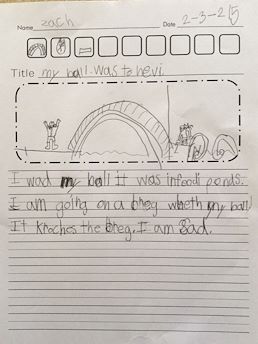 Name zach Date 2-3-215
Title my ball was to hevi.
I wad my ball It was infoodi ponds.
I am going on a breg wheth my ball
It kroches the breg. I am sad.